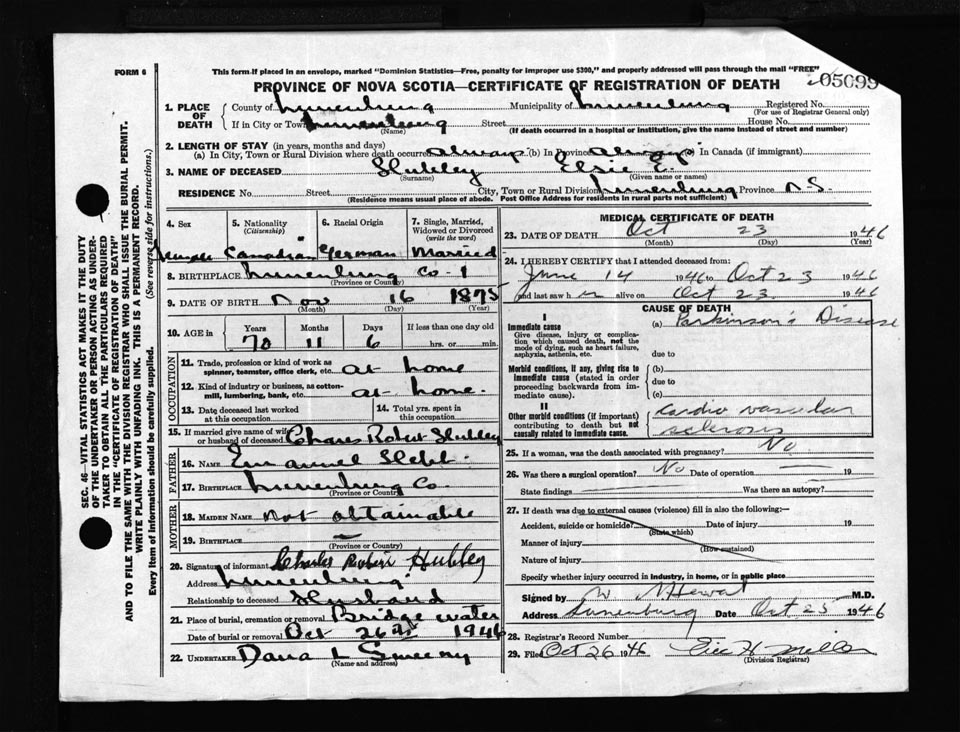 FORM 6
This form if placed in an envelope, marked "Dominion Statistics—Free, penalty for improper use $300," and properly addressed will pass through the mail "FREE"
05099
PROVINCE OF NOVA SCOTIA—CERTIFICATE OF REGISTRATION OF DEATH
SEC. 46—VITAL STATISTICS ACT MAKES IT THE DUTY
OF THE UNDERTAKER OR PERSON ACTING AS UNDER-
TAKER TO OBTAIN ALL THE PARTICULARS REQUIRED
IN THE "CERTIFICATE OF REGISTRATION OF DEATH"
AND TO FILE THE SAME WITH THE DIVISION REGISTRAR WHO SHALL ISSUE THE BURIAL PERMIT.
WRITE PLAINLY WITH UNFADING INK. THIS IS A PERMANENT RECORD.
Every item of information should be carefully supplied. (See reverse side for instructions.)
1. PLACE OF DEATH
County of Lunenburg Municipality of Lunenburg Registered No.
(For use of Registrar General only)
If in City or Town Lunenburg Street House No.
(Name) (If death occurred in a hospital or institution, give the name instead of street and number)
2. LENGTH OF STAY (in years, months and days)
(a) In City, Town or Rural Division where death occurred always (b) In Province always In Canada (if immigrant)
3. NAME OF DECEASED Hubley Elsie E.
(Surname) (Given name or names)
RESIDENCE No Street City, Town or Rural Division Lunenburg Province N.S.
(Residence means usual place of abode. Post Office Address for residents in rural parts not sufficient)
4. Sex 5. Nationality (Citizenship) 6. Racial Origin 7. Single, Married, Widowed or Divorced (write the word)
Female Canadian German Married
8. BIRTHPLACE Lunenburg Co
(Province or County)
9. DATE OF BIRTH Nov 16 1875
(Month) (Day) (Year)
10. AGE in Years Months Days If less than one day old
70 11 6 hrs. or min.
OCCUPATION
11. Trade, profession or kind of work as spinner, teamster, office clerk, etc. at home
12. Kind of industry or business, as cotton-mill, lumbering, bank, etc. at home.
13. Date deceased last worked at this occupation 14. Total yrs. spent in this occupation
15. If married give name of wife or husband of deceased Robert Hubley
FATHER
16. NAME Emanuel
17. BIRTHPLACE Lunenburg Co.
(Province or County)
MOTHER
18. MAIDEN NAME not obtainable
19. BIRTHPLACE —
(Province or County)
20. Signature of informant Charles Robert Hubley
Address Lunenburg
Relationship to deceased Husband
21. Place of burial, cremation or removal Bridgewater
Date of burial or removal Oct 26 1946
22. UNDERTAKER Dana L Sweeny
(Name and address)
MEDICAL CERTIFICATE OF DEATH
23. DATE OF DEATH Oct 23 1946
(Month) (Day) (Year)
24. I HEREBY CERTIFY that I attended deceased from:
June 14 1946 to Oct 23 1946
and last saw her alive on Oct 23. 1946
CAUSE OF DEATH
I
Immediate cause
Give disease, injury or complication which caused death, not the mode of dying, such as heart failure, asphyxia, asthenia, etc.
(a) Parkinson's Disease
due to
Morbid conditions, if any, giving rise to immediate cause (stated in order proceeding backwards from immediate cause).
(b)
due to
(c)
II
Other morbid conditions (if important) contributing to death but not causally related to immediate cause.
Cardio vascular
sclerosis
25. If a woman, was the death associated with pregnancy? No
26. Was there a surgical operation? No Date of operation — 19
State findings Was there an autopsy?
27. If death was due to external causes (violence) fill in also the following:—
Accident, suicide or homicide? Date of injury 19
(State which)
Manner of injury
(How sustained)
Nature of injury
Specify whether injury occurred in industry, in home, or in public place
Signed by M.D.
Address Lunenburg Date Oct 25 1946
28. Registrar's Record Number
29. Filed Oct 26 1946 Miller
(Division Registrar)